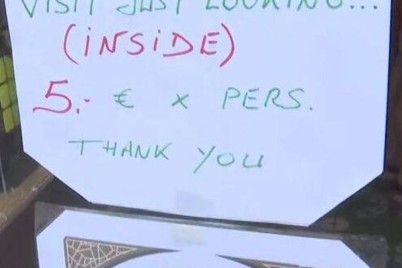 VISIT JUST LOOKING...
(INSIDE)
5.- € x PERS.
THANK YOU